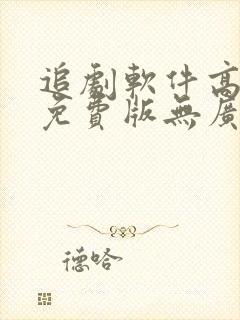 追劇軟件高
免費版無廣
德哈